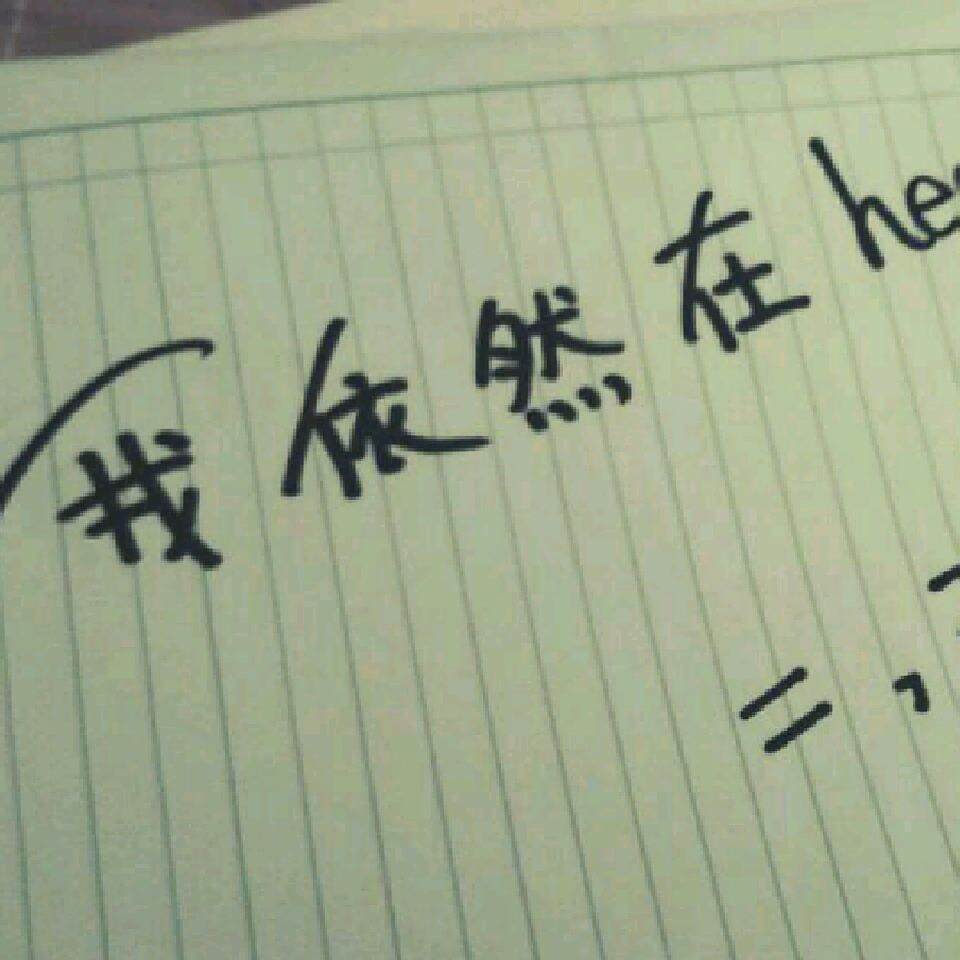 我依然在he
=,